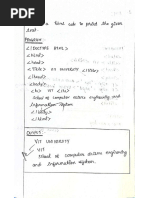 a html code to print the given
text.
Program
<!DOCTYPE html>
<html>
<head>
<title>
</head>
<body>
<h1>
VIT
School of computer science engineering and
Information System
</body>
</html>
Output:
VIT UNIVERSITY
VIT
School of computer science engineering
and Information System.